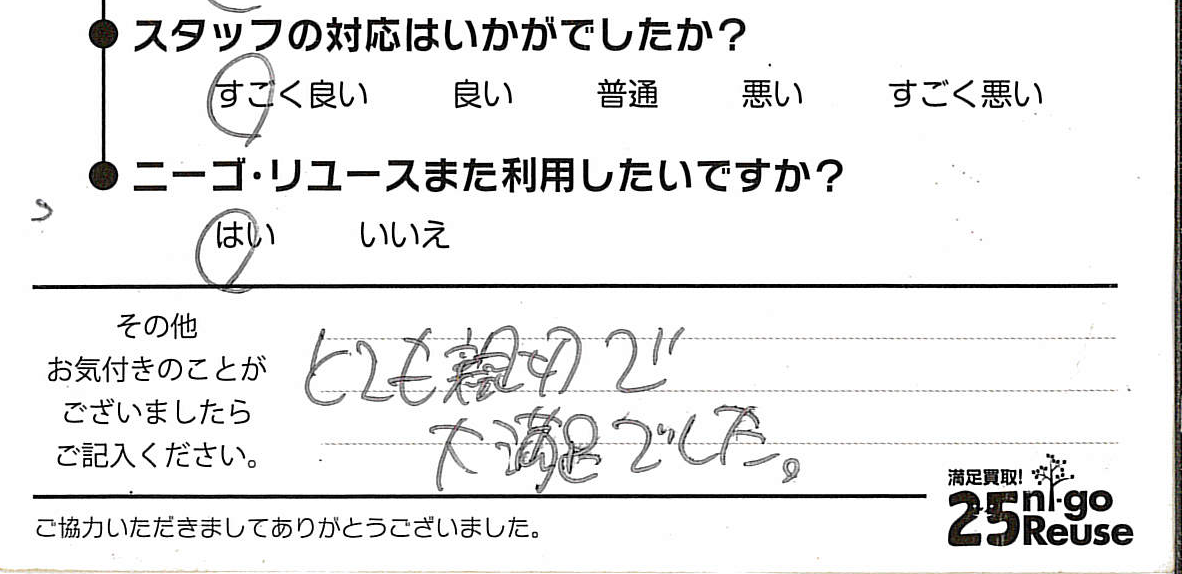 スタッフの対応はいかがでしたか？
すごく良い 良い 普通 悪い すごく悪い
ニーゴ・リユースまた利用したいですか？
はい いいえ
その他
お気付きのことが
ございましたら
ご記入ください。
とても親切で
大満足でした。
ご協力いただきましてありがとうございました。
満足買取!
25 ni-go
Reuse